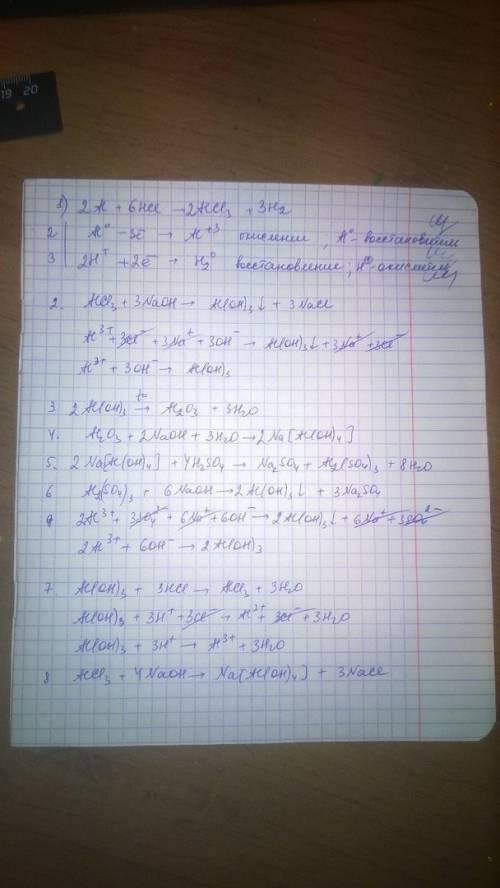 19 20
1) 2Al + 6HCl → 2AlCl₃ + 3H₂
2 | Al⁰ - 3ē → Al⁺³ окисление, Al⁰ - восстановитель
3 | 2H⁺ + 2ē → H₂⁰ восстановление; H⁺ - окислитель
2. AlCl₃ + 3NaOH → Al(OH)₃↓ + 3NaCl
Al³⁺ + 3Cl⁻ + 3Na⁺ + 3OH⁻ → Al(OH)₃↓ + 3Na⁺ + 3Cl⁻
Al³⁺ + 3OH⁻ → Al(OH)₃
3. 2Al(OH)₃ → Al₂O₃ + 3H₂O
4. Al₂O₃ + 2NaOH + 3H₂O → 2Na[Al(OH)₄]
5. 2Na[Al(OH)₄] + 4H₂SO₄ → Na₂SO₄ + Al₂(SO₄)₃ + 8H₂O
6 Al₂(SO₄)₃ + 6NaOH → 2Al(OH)₃↓ + 3Na₂SO₄
2Al³⁺ + 3SO₄²⁻ + 6Na⁺ + 6OH⁻ → 2Al(OH)₃↓ + 6Na⁺ + 3SO₄²⁻
2Al³⁺ + 6OH⁻ → 2Al(OH)₃
7. Al(OH)₃ + 3HCl → AlCl₃ + 3H₂O
Al(OH)₃ + 3H⁺ + 3Cl⁻ → Al³⁺ + 3Cl⁻ + 3H₂O
Al(OH)₃ + 3H⁺ → Al³⁺ + 3H₂O
8 AlCl₃ + 4NaOH → Na[Al(OH)₄] + 3NaCl